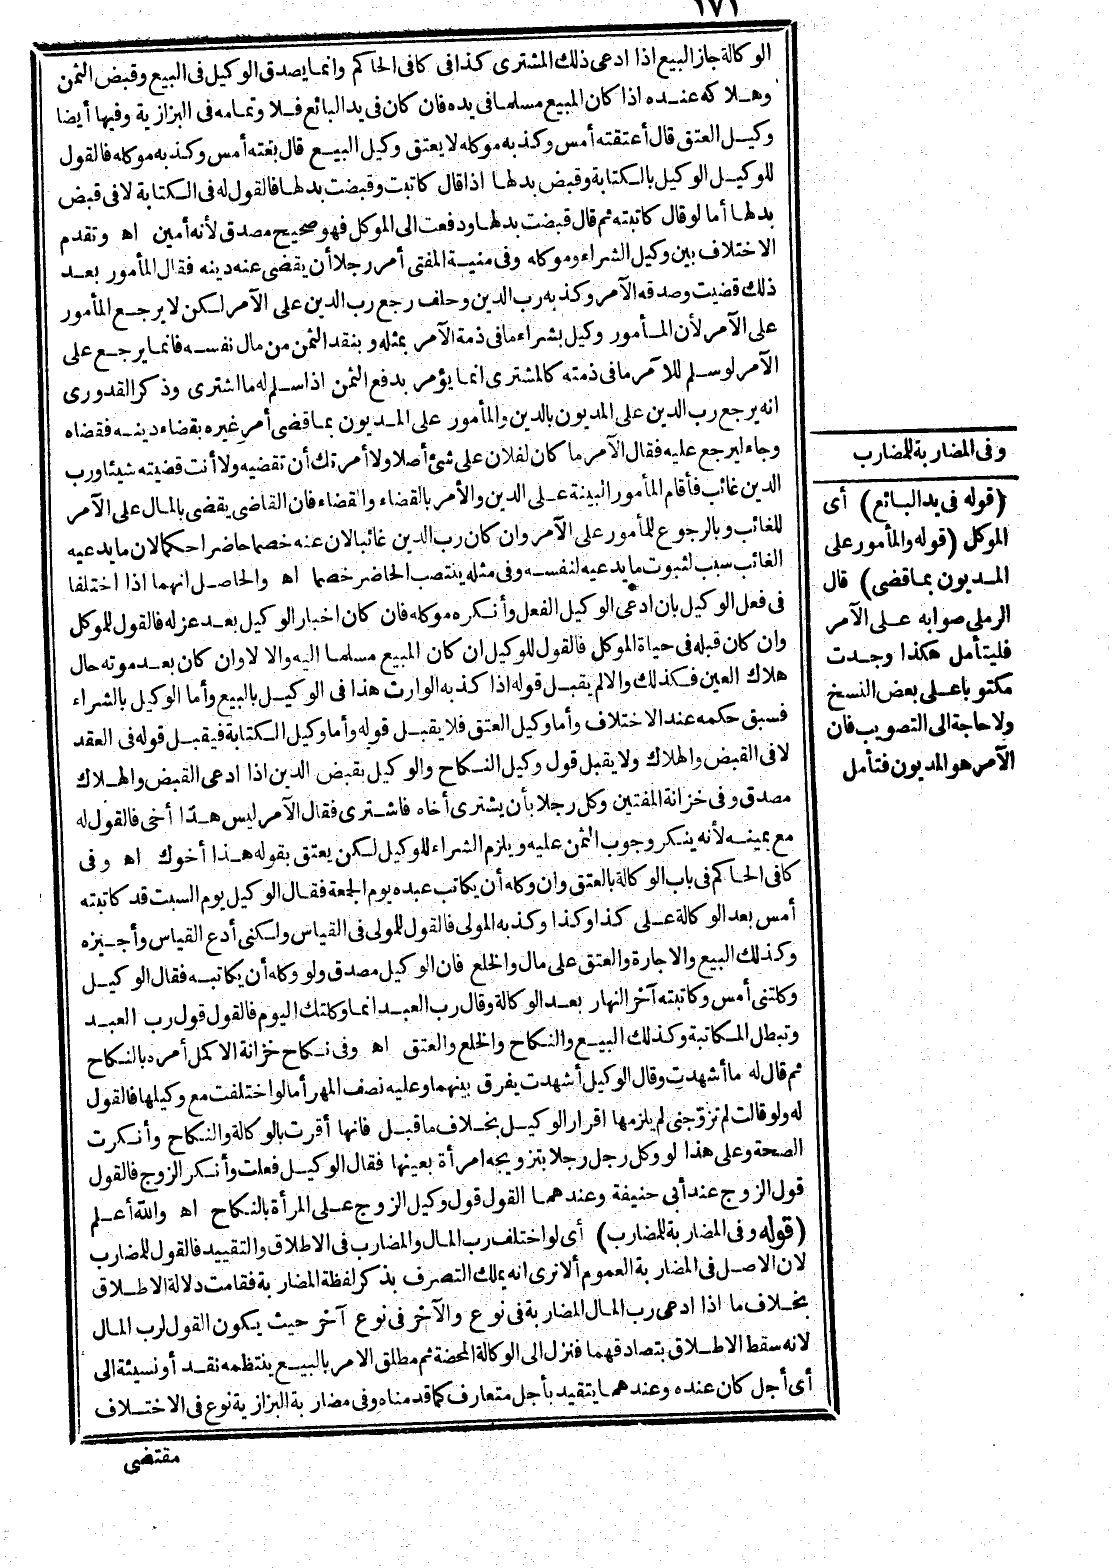 ١٧١
الوكالة جاز البيع اذا ادعى ذلك المشترى كذا فى كافى الحاكم وانما يصدق الوكيل فى البيع وقبض الثمن
وهلاكه عنده اذا كان المبيع مسلما فى يده فان كان فى يد البائع فلا وتمامه فى البزازية وفيها أيضا
وكيل العتق قال أعتقته أمس وكذبه موكله لا يعتق وكيل البيع قال بعته أمس وكذبه موكله فالقول
للوكيل الوكيل بالكتابة وقبض بدلها اذا قال كاتبت وقبضت بدلها فالقول له فى الكتابة لا فى قبض
بدلها أما لو قال كاتبته ثم قال قبضت بدلها ودفعت الى الموكل فهو صحيح مصدق لأنه أمين اه وتقدم
الاختلاف بين وكيل الشراء وموكله وفى منية المفتى أمر رجلا أن يقضى عنه دينه فقال المأمور بعد
ذلك قضيت وصدقه الآمر وكذبه رب الدين وحلف رجع رب الدين على الآمر لكن لا يرجع المأمور
على الآمر لأن المأمور وكيل بشراء ما فى ذمة الآمر بمثله وبنقد الثمن من مال نفسه فانما يرجع على
الآمر لو سلم للآمر ما فى ذمته كالمشترى انما يؤمر بدفع الثمن اذا سلم له ما اشترى وذكر القدورى
انه يرجع رب الدين على المديون بالدين والمأمور على المديون بما قضى أمر غيره بقضاء دينه فقضاه
وجاء ليرجع عليه فقال الآمر ما كان لفلان على شئ أصلا ولا أمرتك أن تقضيه ولا أنت قضيته شيئا ورب
الدين غائب فأقام المأمور البينة على الدين والأمر بالقضاء والقضاء فان القاضى يقضى بالمال على الآمر
للغائب وبالرجوع للمأمور على الآمر وان كان رب الدين غائبا لان عنه خصما حاضرا حكما لان ما يدعيه
الغائب سبب لثبوت ما يدعيه لنفسه وفى مثله ينتصب الحاضر خصما اه والحاصل انهما اذا اختلفا
فى فعل الوكيل بان ادعى الوكيل الفعل وأنكره موكله فان كان اخبار الوكيل بعد عزله فالقول للموكل
وان كان قبله فى حياة الموكل فالقول للوكيل ان كان المبيع مسلما اليه والا لا وان كان بعد موته حال
هلاك العين فكذلك والا لم يقبل قوله اذا كذبه الوارث هذا فى الوكيل بالبيع وأما الوكيل بالشراء
فسبق حكمه عند الاختلاف وأما وكيل العتق فلا يقبل قوله وأما وكيل الكتابة فيقبل قوله فى العقد
لا فى القبض والهلاك ولا يقبل قول وكيل النكاح والوكيل بقبض الدين اذا ادعى القبض والهلاك
مصدق وفى خزانة المفتين وكل رجلا بأن يشترى أخاه فاشترى فقال الآمر ليس هذا أخى فالقول له
مع يمينه لأنه ينكر وجوب الثمن عليه ويلزم الشراء للوكيل لكن يعتق بقوله هذا أخوك اه وفى
كافى الحاكم فى باب الوكالة بالعتق وان وكله أن يكاتب عبده يوم الجمعة فقال الوكيل يوم السبت قد كاتبته
أمس بعد الوكالة على كذا وكذا وكذبه المولى فالقول للمولى فى القياس ولكنى أدع القياس وأجيزه
وكذلك البيع والاجارة والعتق على مال والخلع فان الوكيل مصدق ولو وكله أن يكاتبه فقال الوكيل
وكلتنى أمس وكاتبته آخر النهار بعد الوكالة وقال رب العبد انما وكلتك اليوم فالقول قول رب العبد
وتبطل المكاتبة وكذلك البيع والنكاح والخلع والعتق اه وفى نكاح خزانة الاكمل أمره بالنكاح
ثم قال له ما أشهدت وقال الوكيل أشهدت يفرق بينهما وعليه نصف المهر أما لو اختلفت مع وكيلها فالقول
له ولو قالت لم تزوجنى لم يلزمها اقرار الوكيل بخلاف ما قبل فانها أقرت بالوكالة والنكاح وأنكرت
الصحة وعلى هذا لو وكل رجل رجلا بتزويجه امرأة بعينها فقال الوكيل فعلت وأنكر الزوج فالقول
قول الزوج عند أبى حنيفة وعندهما القول قول وكيل الزوج على المرأة بالنكاح اه والله أعلم
(قوله وفى المضاربة للمضارب) أى لو اختلف رب المال والمضارب فى الاطلاق والتقييد فالقول للمضارب
لان الاصل فى المضاربة العموم ألا ترى انه يملك التصرف بذكر لفظة المضاربة فقامت دلالة الاطلاق
بخلاف ما اذا ادعى رب المال المضاربة فى نوع والآخر فى نوع آخر حيث يكون القول لرب المال
لانه سقط الاطلاق بتصادقهما فنزل الى الوكالة المحضة ثم مطلق الامر بالبيع ينتظمه نقد أو نسيئة الى
أى أجل كان عنده وعندهما يتقيد بأجل متعارف كما قدمناه وفى مضاربة البزازية نوع فى الاختلاف
مقتضى
وفى المضاربة للمضارب
(قوله فى يد البائع) أى
الموكل (قوله والمأمور على
المديون بما قضى) قال
الرملى صوابه على الآمر
فليتأمل هكذا وجدت
مكتوبا على بعض النسخ
ولا حاجة الى التصويب فان
الآمر هو المديون فتأمل